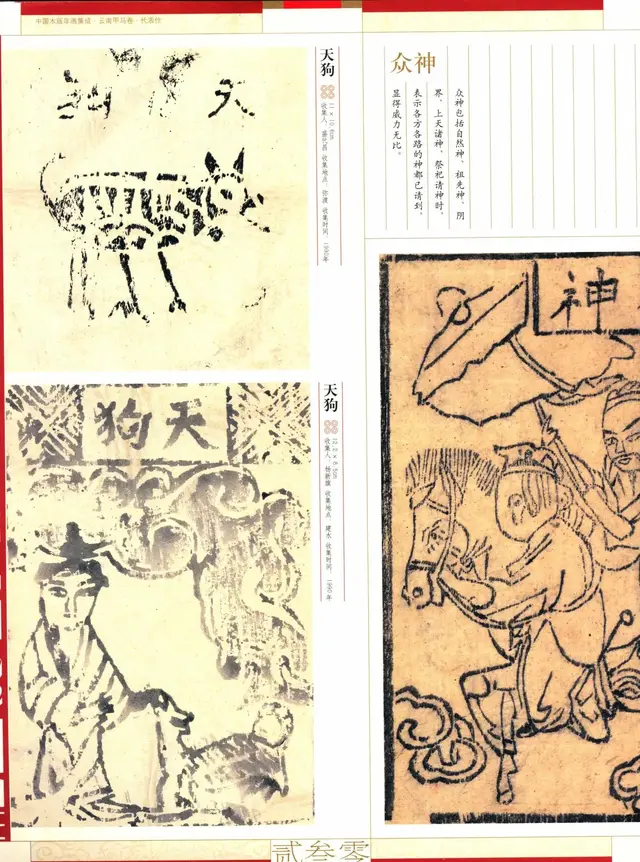 中国木版年画集成·云南甲马卷·代表作
天狗
天狗
收集地点、弥渡 收集时间、1990年
天狗
天狗
收集人、杨新旗 收集地点、建水 收集时间、1990年
众神
众神也包括自然神、祖先神、阴
界、上天诸神。祭祀请神时,
表示各方各路的神都已请到,
显得威力无比。
神
贰叁零